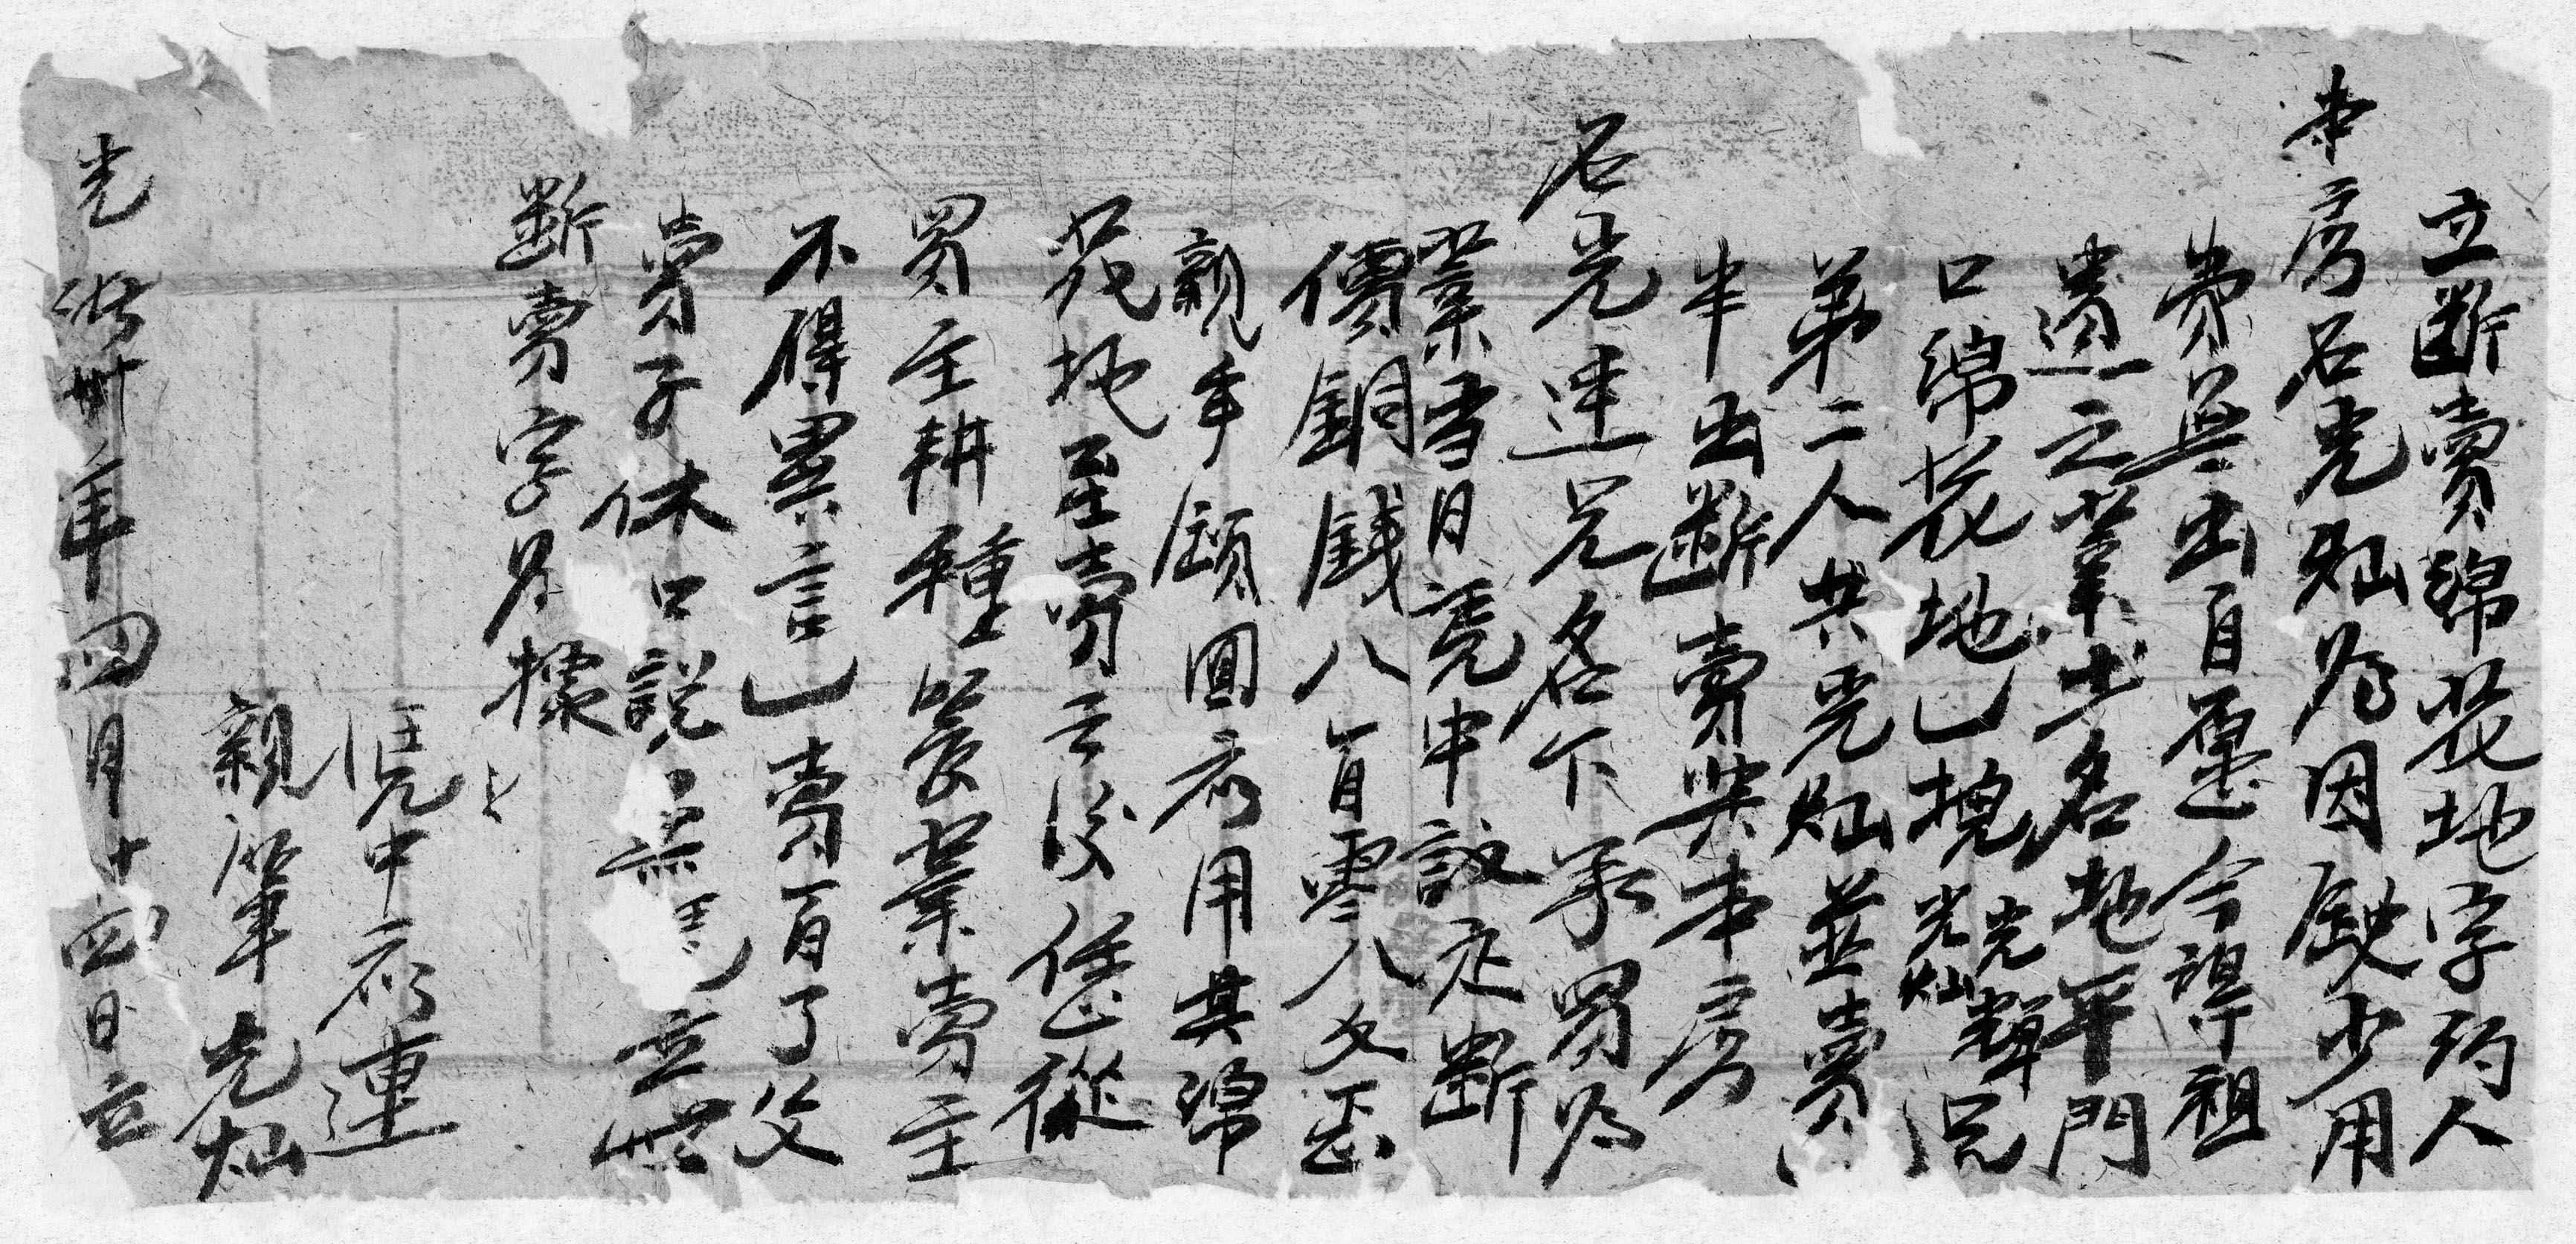 立断賣綿花地字約人
本房石光灿為因缺少用
費無出自愿今將祖
遺之業土名地平門
口綿花地一塊光輝兄
光灿
弟二人共光灿並賣
半出断賣與本房
石光連兄名下承買為
業當日憑中議定断
價銅錢八百零八文正
親手領回應用其綿
花地至賣之後任從
買主耕種管業賣主
不得異言一賣百了父
賣子休口說無憑立
断賣字為據
憑中應連
親筆光灿
光緒卅年四月十四日立